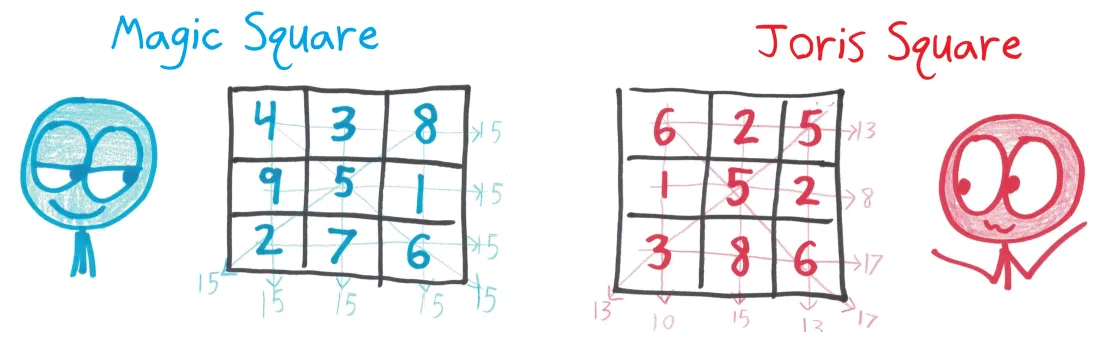 Magic Square
4 3 8 15
9 5 1 15
2 7 6 15
15 15 15 15 15
Joris Square
6 2 5 13
1 5 2 8
3 8 6 17
13 10 15 13 17